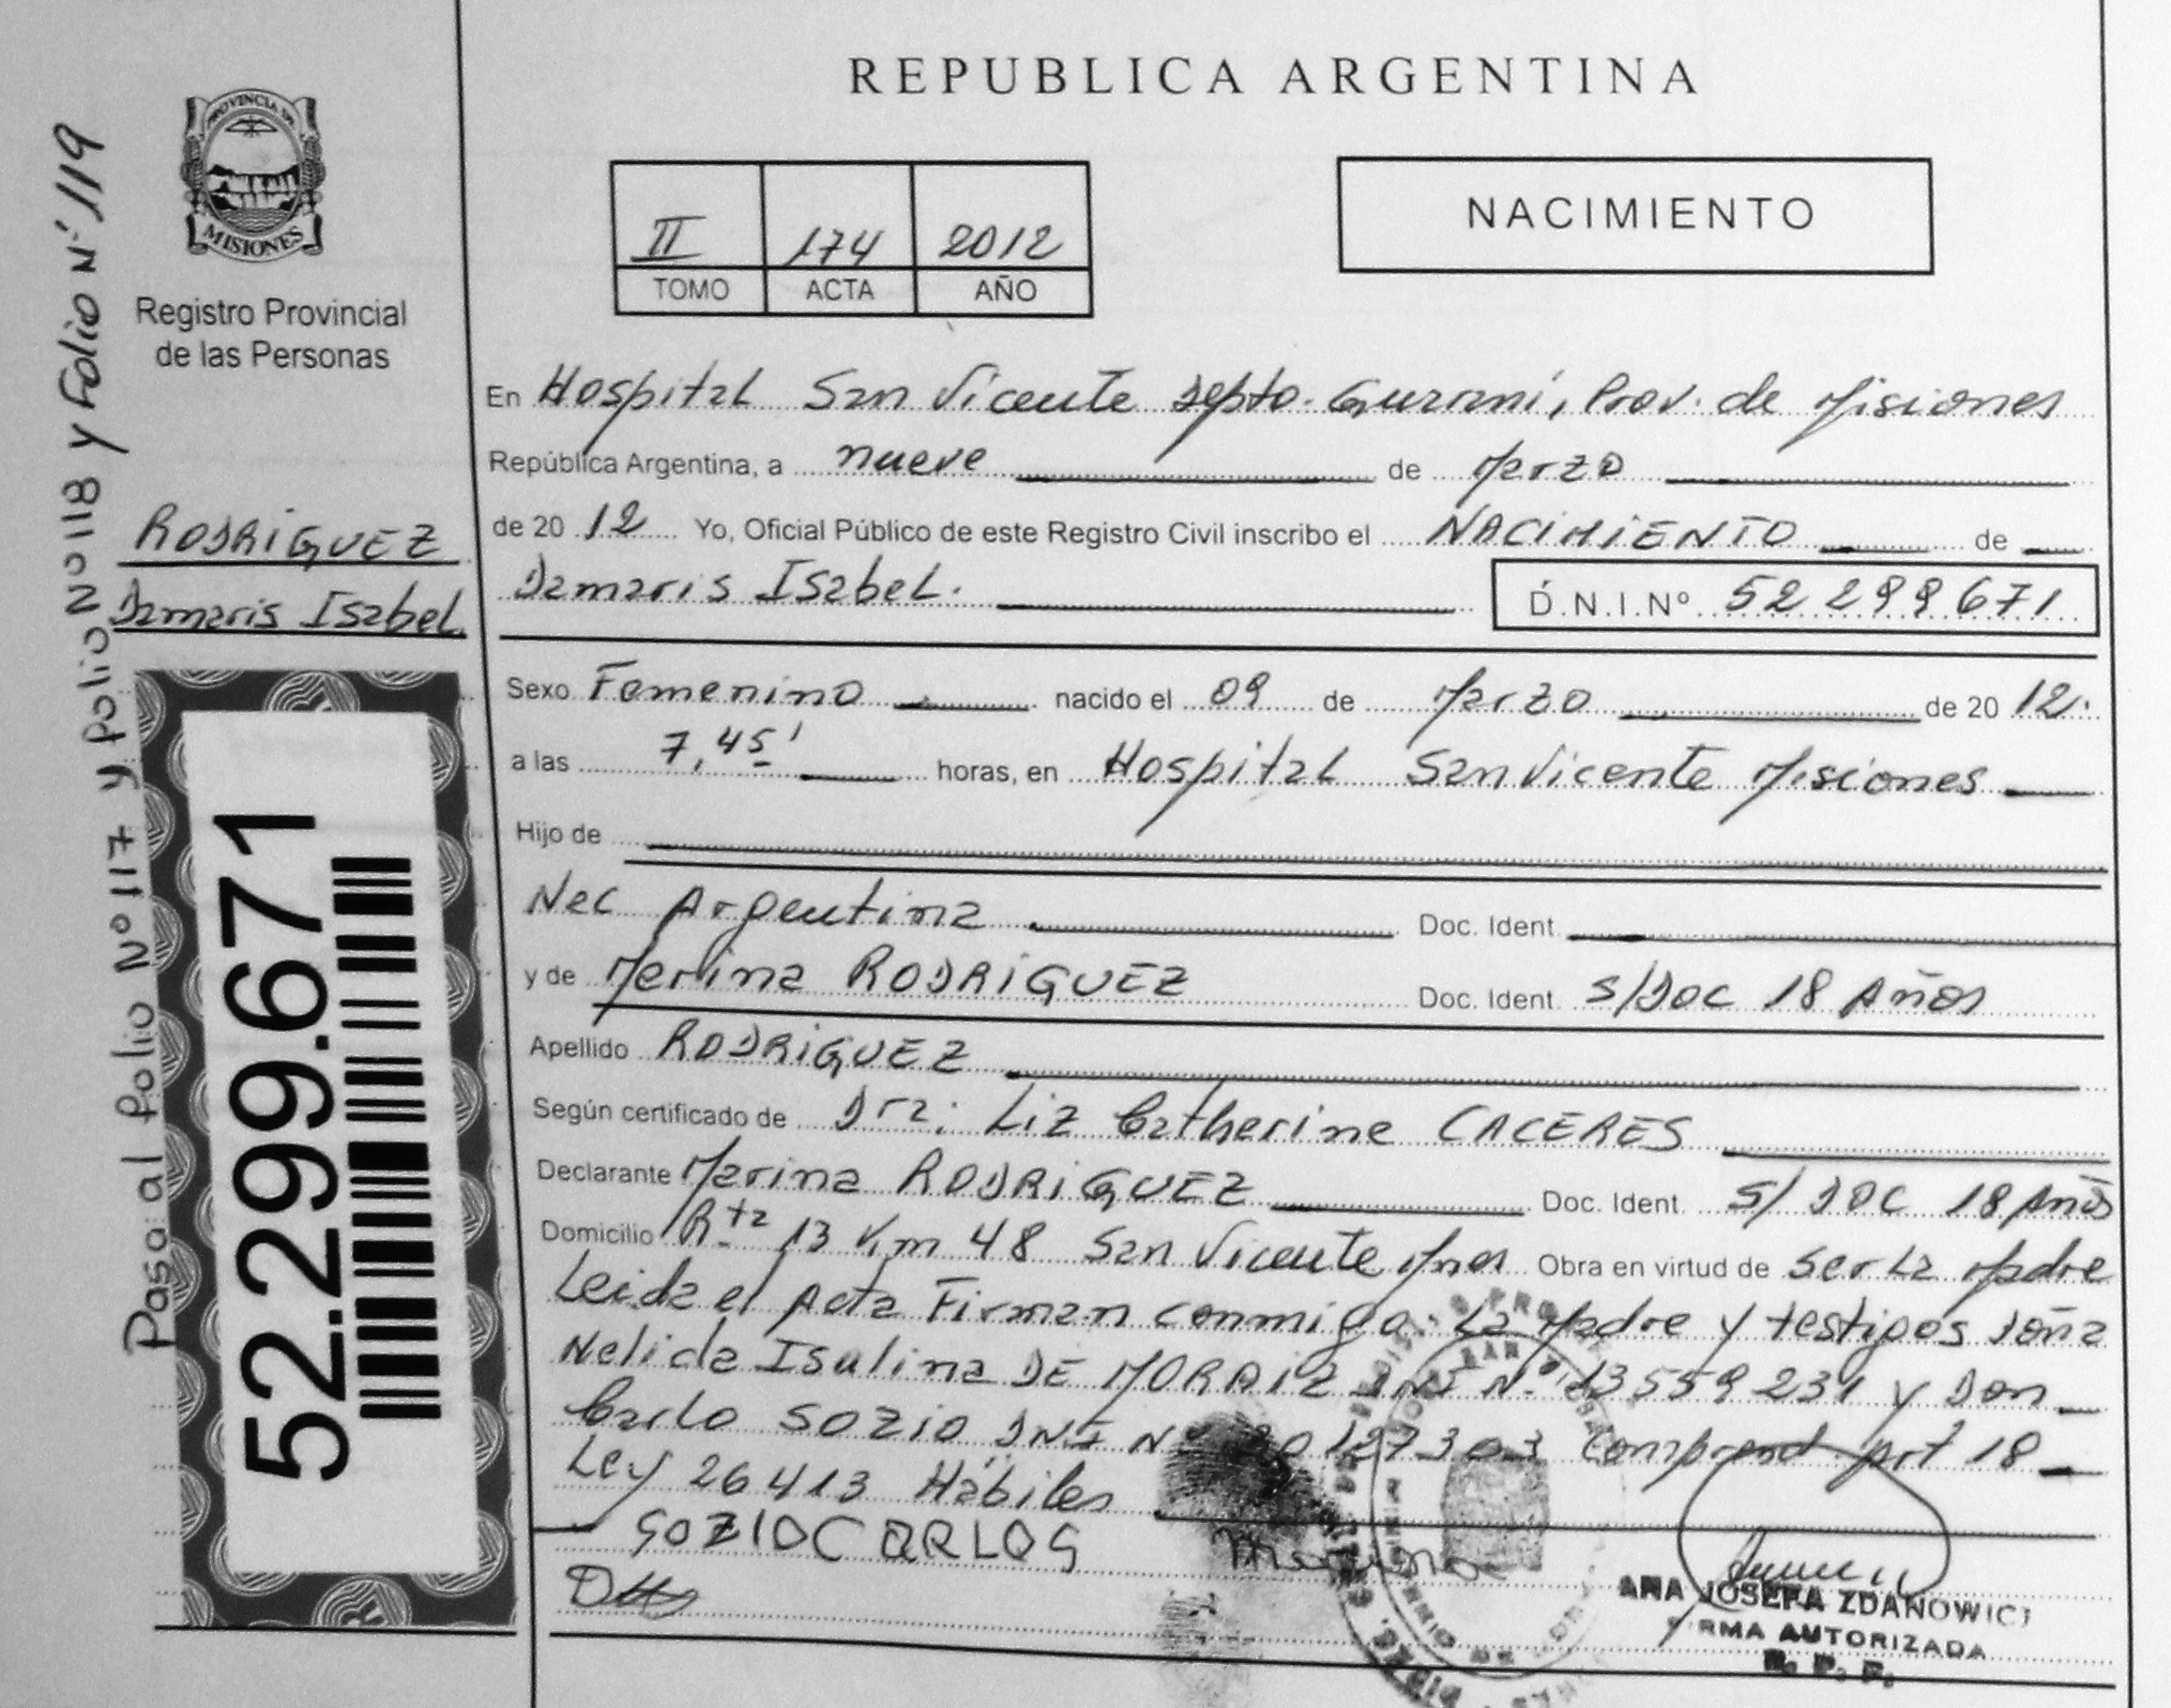 REPUBLICA ARGENTINA
PROVINCIA DE
MISIONES
Registro Provincial
de las Personas
II 174 2012
TOMO ACTA AÑO
NACIMIENTO
En Hospital San Vicente Depto. Guarani, Prov. de Misiones
República Argentina, a nueve de Marzo
de 20 12 Yo, Oficial Público de este Registro Civil inscribo el NACIMIENTO de
Damaris Isabel. D.N.I.Nº 52 299 671
RODRIGUEZ
Damaris Isabel
Sexo Femenino nacido el 09 de Marzo de 20 12.
a las 7,45' horas, en Hospital San Vicente Misiones
Hijo de
Nac Argentina Doc. Ident.
y de Marina RODRIGUEZ Doc. Ident. S/DOC 18 Años
Apellido RODRIGUEZ
Según certificado de Dra: Liz Catherine CACERES
Declarante Marina RODRIGUEZ Doc. Ident. S/DOC 18 Años
Domicilio Rta 13 Km 48 San Vicente Mnes Obra en virtud de ser La Madre
Leida el Acta Firman conmigo: La Madre y testigos Doña
Nelida Isulina DE MORAIZ DNI Nº 13559231 y Don
Carlo SOZIO DNI Nº Comprend art 18
Ley 26413 Hábiles
SOZIO CARLOS
Marina
ANA JOSEFA ZDANOWICZ
FIRMA AUTORIZADA
R. P. P.
52.299.671
Pasa al Folio Nº 117 y Folio Nº 118 y Folio Nº 119